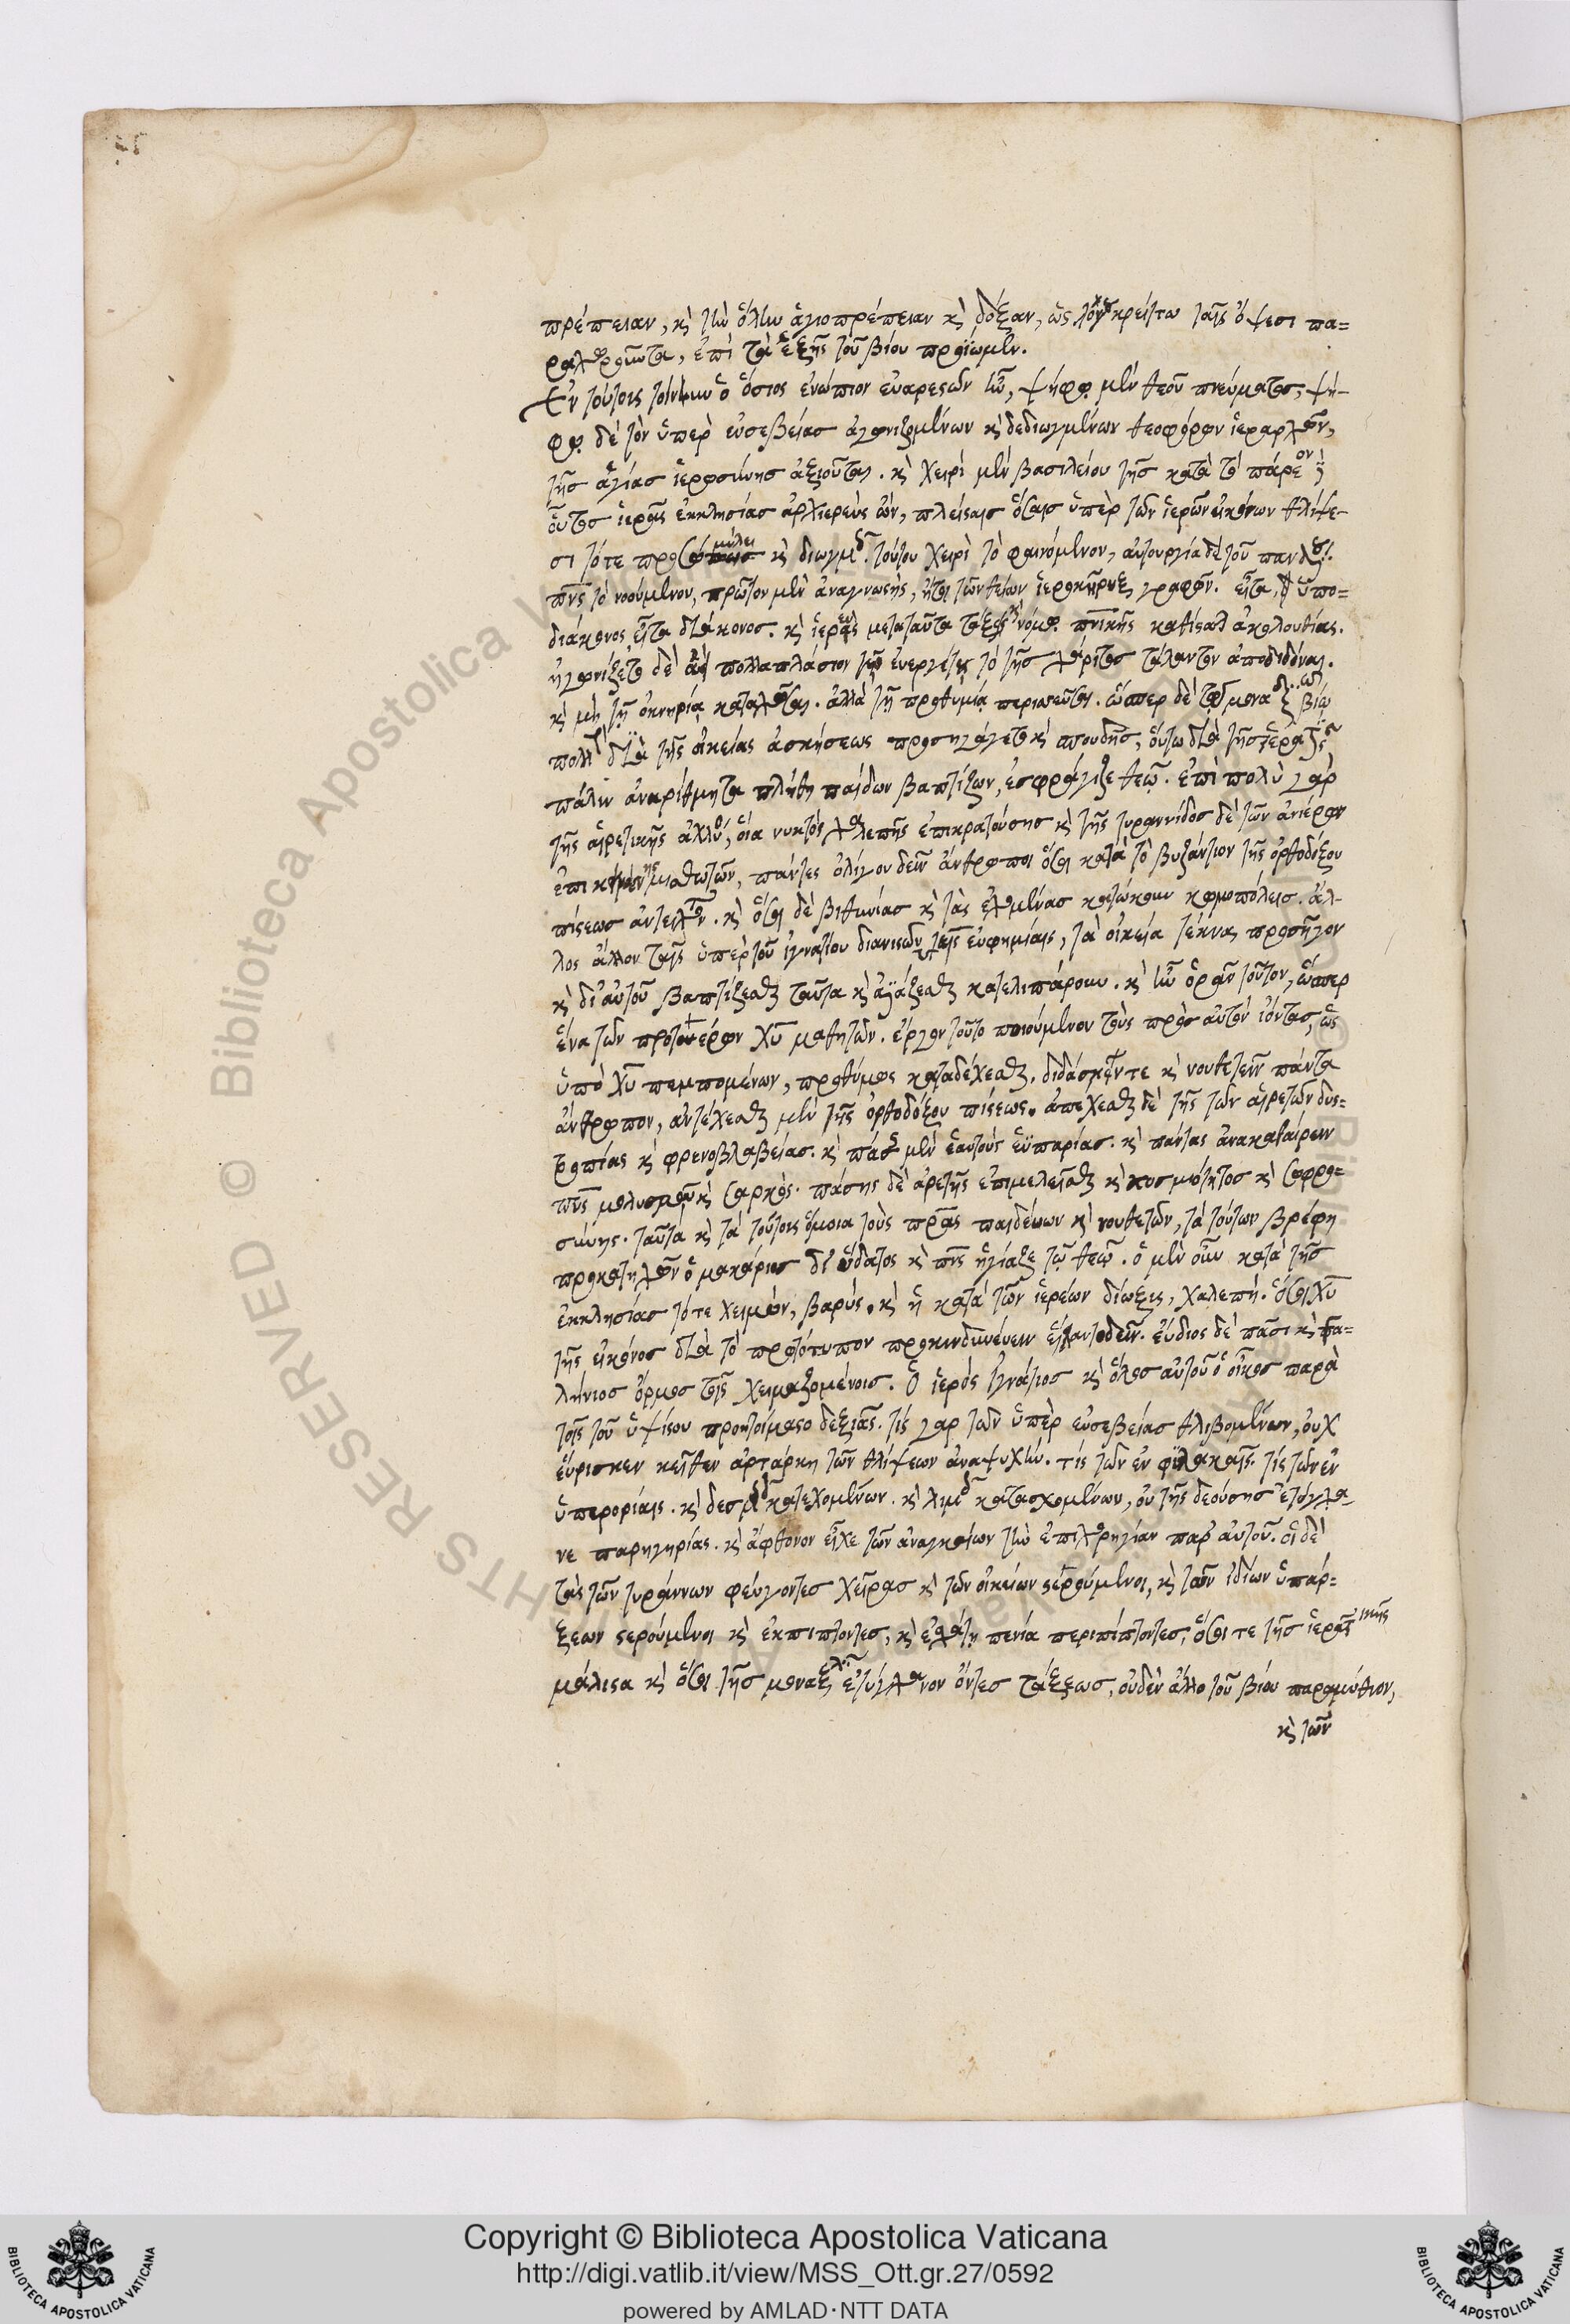 πρέπειαν, κὶ τὴν ὅλην ἁγιοπρέπειαν κὶ δόξαν, ὡς λόγου κρείττω ταῖς ὄψεσι πα=
ἐπὶ τὰ ἑξῆς τοῦ βίου προΐωμεν.
Ἐν τούτοις τοίνυν ὁ ὅσιος ἐνώπιον εὐαρεστῶν κυ, ψήφῳ μὲν θεοῦ πνεύματος, ψή-
φῳ δὲ τῶν ὑπὲρ εὐσεβείας ἀγωνιζομένων κὶ δεδιωγμένων θεοφόρων ἱεραρχῶν,
τῆς ἁγίας ἱερωσύνης ἀξιοῦται. κὶ χειρὶ μὲν βασιλείου τῆς κατὰ τὸ πάρεον
οὗτος ἱερᾶς ἐκκλησίας ἀρχιερεὺς ὤν, πλείσταις ὅσαις ὑπὲρ τῶν ἱερῶν εἰκόνων θλίψε-
σι τότε κὶ διωγμ. τούτου χειρὶ τὸ φαινόμενον, αὐτουργία δὲ τοῦ παν
πνς τὸ νοούμενον, πρῶτον μὲν ἀναγνωστὴς, ἤτοι τῶν θείων ἱεροκῆρυξ γραφῶν. εἶτα, ὑπο=
διάκονος, εἶτα διάκονος. κὶ ἱερεὺς μεταταῦτα τάξει κὶ νόμῳ πνικῆς καθίσταται ἀκολουθίας.
ἠγωνίζετο δὲ ἀεὶ πολλαπλάσιον τῷ ἐνεργέτῃ τὸ τῆς χάριτος τάλαντον ἀποδιδόναι.
κὶ μὴ τῇ ὀκνηρίᾳ. ἀλλὰ τῇ προθυμίᾳ. ὥσπερ δὲ τῷ βίῳ
διὰ τῆς οἰκείας ἀσκήσεως προσηγάγετο κὶ σπουδῆς, οὕτω διὰ τῆς
πάλιν ἀναρίθμητα πλήθη παίδων βαπτίζων, ἐσφράγιζε θεῷ. ἐπὶ πολὺ γὰρ
τῆς αἱρετικῆς ἀχλύος, οἷα νυκτὸς χαλεπῆς ἐπικρατούσης κὶ τῆς τυραννίδος δὲ τῶν ἀνιέρων
ἐπι μισθωτῶν, πάντες ὀλίγου δεῖν ἄνθρωποι ὅσοι κατὰ τὸ βυζάντιον τῆς ὀρθοδόξου
πίστεως ἀντείχον. κὶ ὅσοι δὲ βιθυνίας κὶ τὰς ἐχομένας κατώκουν κωμοπόλεις. ἄλ-
λος ἄλλον ταῖς ὑπὲρ τοῦ ἰγνατίου διανιστῶν ταῖς εὐφημίαις, τὰ οἰκεῖα τέκνα προσῆγον
κὶ δι' αὐτοῦ βαπτίζεσθαι ταῦτα κὶ ἁγιάζεσθαι κατελιπάρουν. κὶ ἦν ὁρᾶν τοῦτον, ὥσπερ
ἕνα τῶν χυ μαθητῶν. ἔργον τοῦτο ποιούμενον τοὺς πρὸς αὐτὸν ἰόντας, ὡς
ὑπὸ χυ πεμπομένων, προθύμως καταδέχεσθαι. διδάσκειν τε κὶ νουθετεῖν πάντα
ἄνθρωπον, ἀντέχεσθαι μὲν τῆς ὀρθοδόξου πίστεως. ἀπέχεσθαι δὲ τῆς τῶν αἱρετῶν δυς=
τροπίας κὶ φρενοβλαβείας. κὶ πάσης μὲν ἑαυτοὺς. κὶ πάντας ἀνακαθαίρειν
πνς μολυσμοῦ κὶ σαρκός. πάσης δὲ ἀρετῆς ἐπιμελεῖσθαι κὶ κοσμιότητος κὶ σωφρο-
σύνης. ταῦτα κὶ τὰ τούτοις ὅμοια τοὺς πρας παιδεύων κὶ νουθετῶν, τὰ τούτων βρέφη
ὁ μακάριος δι' ὕδατος κὶ πνς ἡγίαζε τῷ θεῷ. ὁ μὲν οὖν κατὰ τῆς
ἐκκλησίας τότε χειμών, βαρύς. κὶ ἡ κατὰ τῶν ἱερέων δίωξις, χαλεπή. ὅσοι χυ
τῆς εἰκόνος διὰ τὸ πρωτότυπον προκινδυνεύειν. εὔδιος δὲ πᾶσι κὶ γα=
λήνιος ὅρμος τοῖς χειμαζομένοις. ὁ ἱερὸς ἰγνάτιος κὶ ὅλος αὐτοῦ ὁ οἶκος παρὰ
τῆς τοῦ ὑψίστου προητοίμαστο δεξιᾶς. τίς γὰρ τῶν ὑπὲρ εὐσεβείας θλιβομένων, οὐχ
εὕρισκεν κεῖθεν ἀρτάρκη τῶν θλίψεων ἀναψυχήν. τίς τῶν ἐν φυλακαῖς. τίς τῶν ἐν
ὑπερορίαις. κὶ δεσμοῖς κατεχομένων. κὶ λιμῷ κατασχομένων, οὐ τῆς δεούσης ἐτύγχα-
νε παρηγορίας. κὶ ἄφθονον εἶχε τῶν ἀναγκαίων τὴν ἐπιχορηγίαν παρ' αὐτοῦ. οἱ δὲ
τὰς τῶν τυράννων φεύγοντες χεῖρας κὶ τῶν οἰκείων στερούμενοι, κὶ τῶν ἰδίων ὑπάρ=
ξεων στερούμενοι κὶ ἐκπίπτοντες, κὶ ἐσχάτῃ πενίᾳ περιπίπτοντες, ὅσοι τε τῆς ἱερατικῆς
μάλιστα κὶ ὅσοι τῆς μοναχικῆς ἐτύγχανον ὄντες τάξεως, οὐδὲν ἄλλο τοῦ βίου παραμύθιον,
κὶ τῶν
Copyright © Biblioteca Apostolica Vaticana
http://digi.vatlib.it/view/MSS_Ott.gr.27/0592
powered by AMLAD·NTT DATA